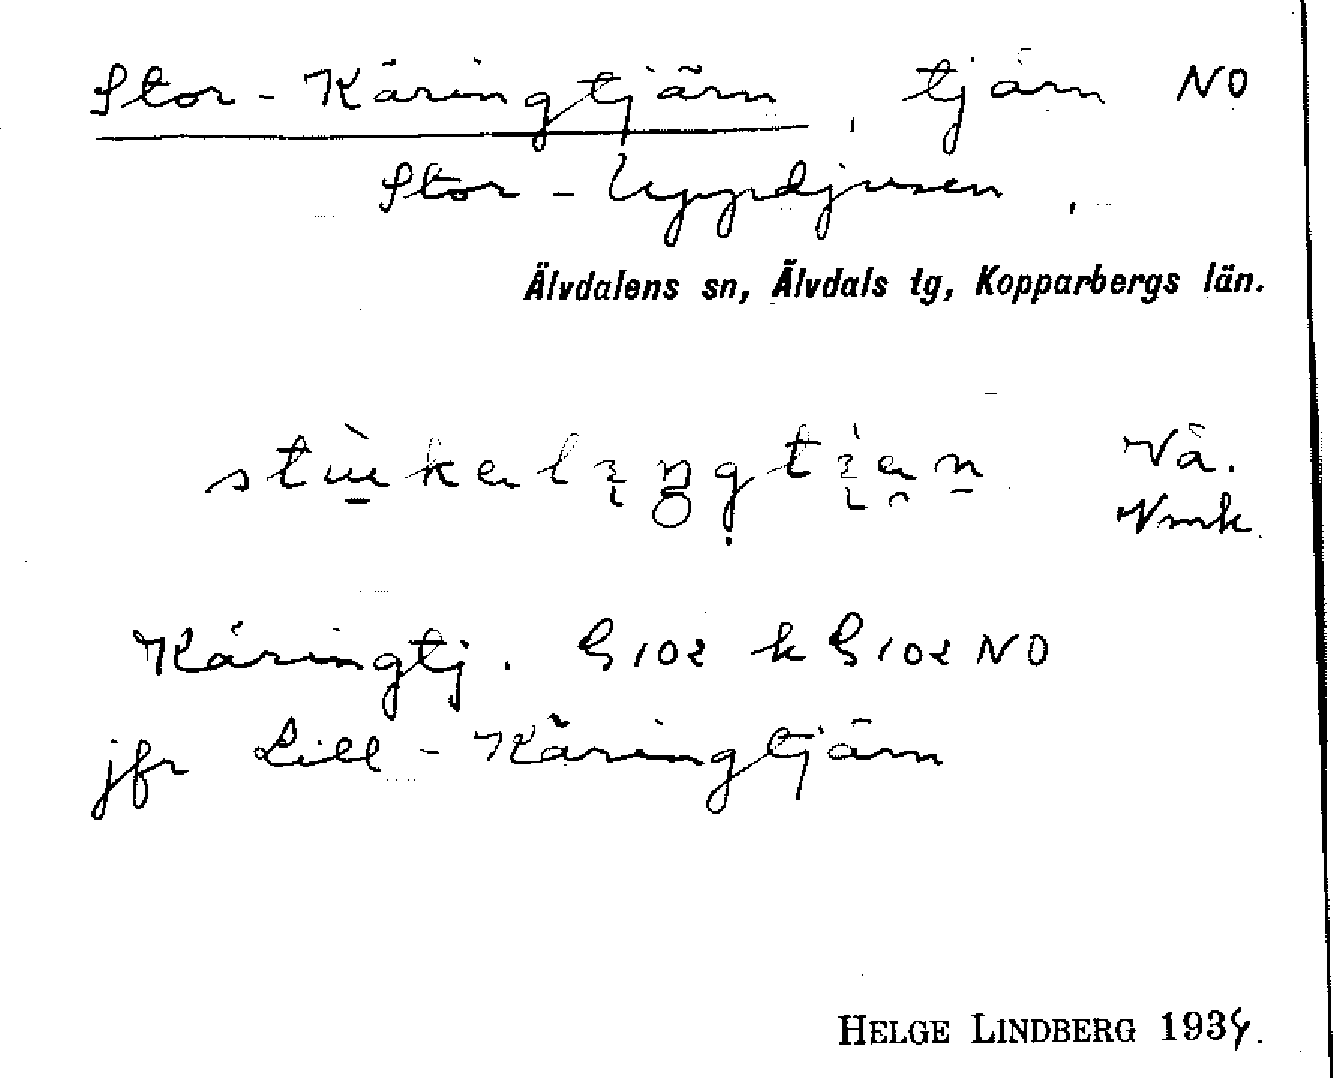 Stor-Käringtjärn, tjärn NO
Stor-Uppdjusen,
Älvdalens sn, Älvdals tg, Kopparbergs län.
Vå.
Nmk.
Käringtj. G 102 k G 102 NO
jfr Lill-Käringtjärn
HELGE LINDBERG 1934.